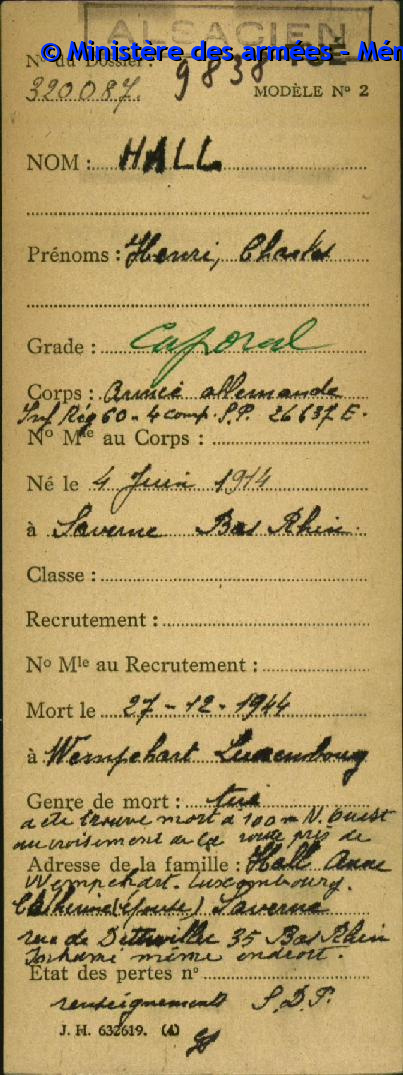 ALSACIEN
© Ministère des armées - Mém
TUÉ
No du Dossier :
320087. 9838
MODÈLE No 2
NOM : HALL
Prénoms : Henri, Charles
Grade : Caporal
Corps : Armée allemande
Inf Rég 60 - 4 comp. S.P. 26637 E.
No Mle au Corps :
Né le 4 Juin 1914
à Saverne Bas Rhin
Classe :
Recrutement :
No Mle au Recrutement :
Mort le 27-12-1944
à Wempchart Luxembourg
Genre de mort : tué
a été trouvé mort à 100 m N. Ouest
au croisement de la route près de
Adresse de la famille : Hall Anne
Wempchart. Luxembourg.
Catherine (épouse) Saverne
rue de 35 Bas Rhin
Inhumé même endroit.
Etat des pertes no
renseignements S.D.P.
J. H. 632619. (4)